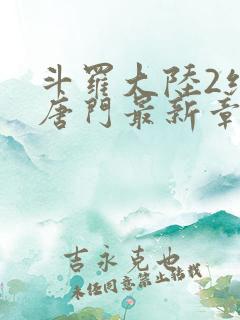 斗羅大陸2
唐門最新章
吉永克也
未任同意禁止轉載